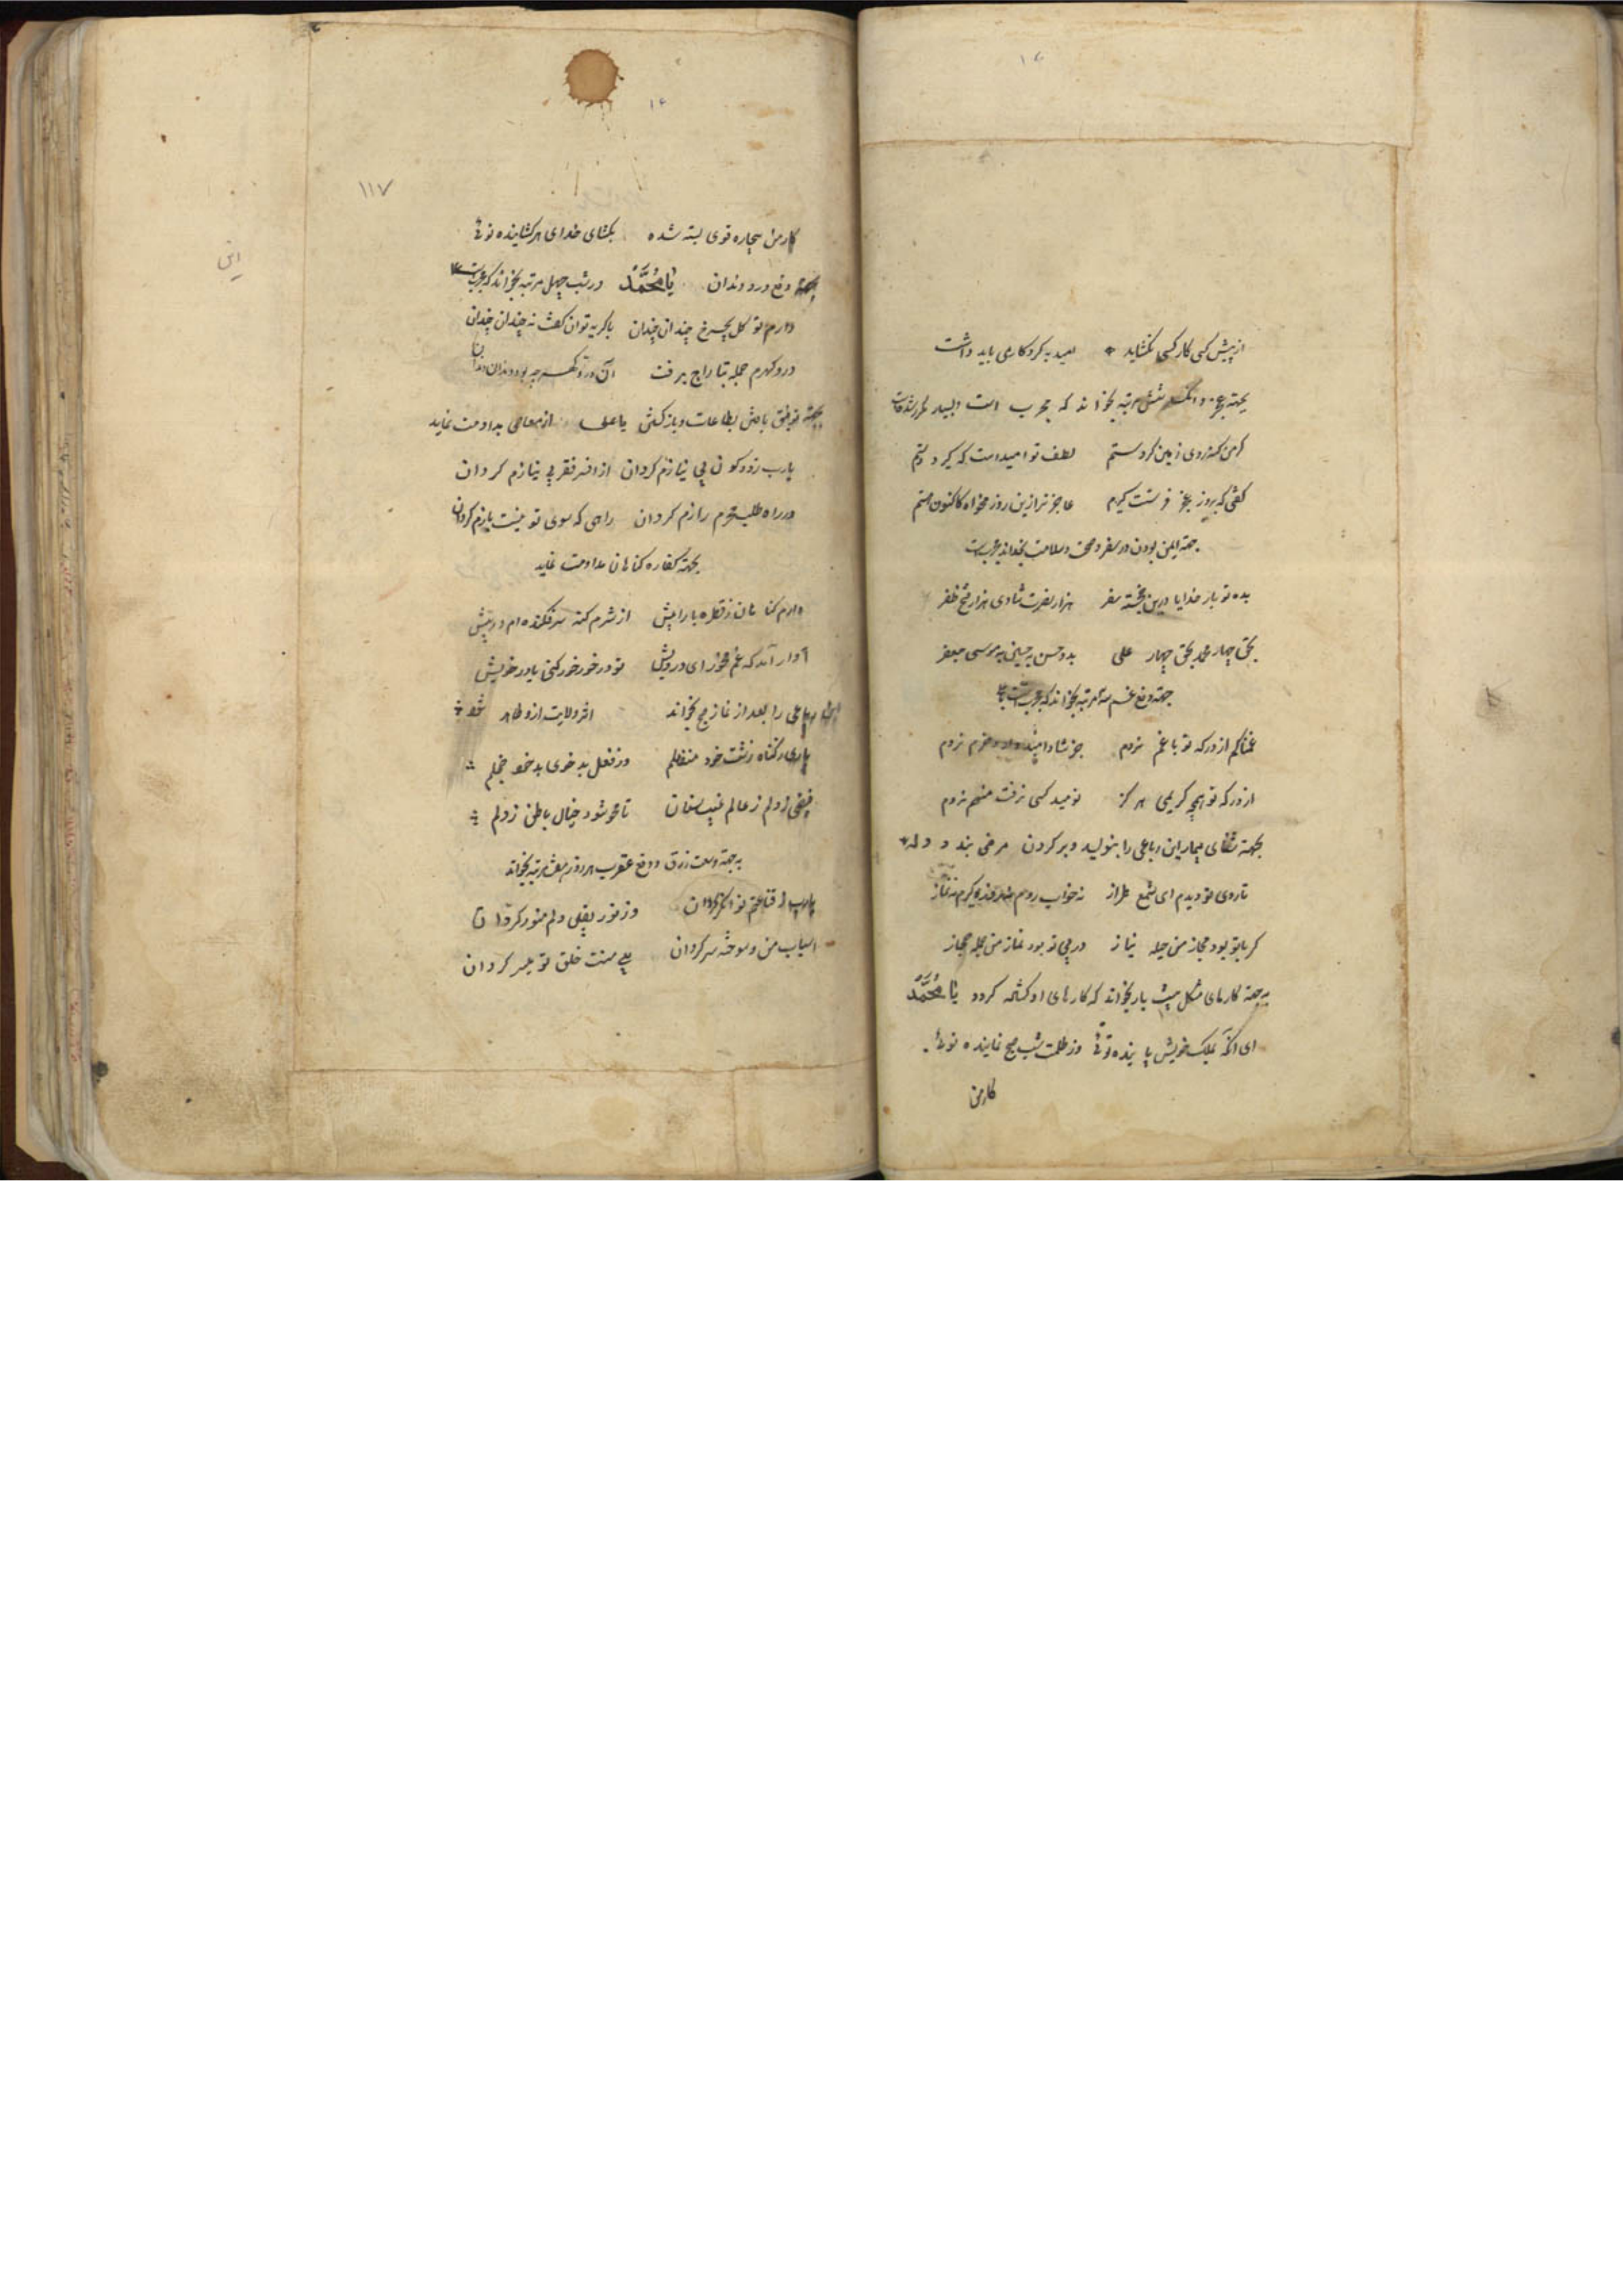 از پیش کسی کار کسی نگشاید امید به کردکاری باید داشت
بجهته عجز و شش مرتبه بخواند که مجرب است
کر من کنه روی زمین کردستم لطف تو امیدست که کیرد دستم
کفتی که بروز عجز دستت کیرم عاجزتر ازین روز مخواه کاکنون هستم
جهته ایمن بودن در سفر و صحت و سلامت بخواند مجربست
بده تو بار خدایا درین خجسته سفر هزار نصرت شادی هزار فتح ظفر
بحق چهار محمد بحق چهار علی بدو حسن به حسین به موسی جعفر
جهته دفع غم سه مرتبه بخواند که مجربست
غمناکم از درکه تو با غم نروم جز شاد و امیدوار و خرم نروم
از درکه تو همچو کریمی هرکز نومید کسی نرفت منهم نروم
بجهته شفای بیمار این رباعی را بنویسد و بر کردن مرض بندد
تا روی تو دیدم ای شمع طراز نه خواب روم نه روزه کیرم نه نماز
کر با تو بود مجاز من جمله نیاز ور بی تو بود نماز من جمله مجاز
به جهته کارهای مشکل بیست بار بخواند که کارهای او کشاده کردد یا محمد
ای آنکه بملک خویش پاینده توئی وز ظلمت شب صبح نماینده توئی
کار من
۱۶
۱۱۷
کار من بیچاره قوی بسته شده بکشای خدای هر کشاینده توئی
بجهته دفع درد دندان یا محمد در شب چهل مرتبه بخواند که مجربست
دارم تو کل چرخ چندان چندان با کریه توان کفت نه چندان چندان
در و کهرم جمله بتاراج برفت آن در و کهر چه بود دندان دندان
بجهته توفیق یافتن بطاعات و بازکشتن یا علی از معاصی مداومت نماید
یارب ز دو کون بی نیازم کردان از افسر فقر بی نیازم کردان
در راه طلب محرم رازم کردان راهی که سوی تو نیست بازم کردان
بجهته کفاره کناهان مداومت نماید
دارم کناهان ز قطره باران بیش از شرم کنه سر فکنده ام در پیش
آواز آمد که غم مخور ای درویش تو در خور خود کنی ما در خور خویش
این رباعی را بعد از نماز صبح بخواند اثر ولایت ازو ظاهر شود
یارب ز کناه زشت خود منفعلم وز فعل بد خوی بد خود خجلم
فیضی بدلم ز عالم غیب رسان تا محو شود خیال باطل ز دلم
به جهته وسعت رزق و دفع عقرب هر روز هفت مرتبه بخواند
یارب ز قناعتم توانکر کردان وز نور یقین دلم منور کردان
اسباب من سوخته سرکردان بی منت خلق تو میسر کردان
این